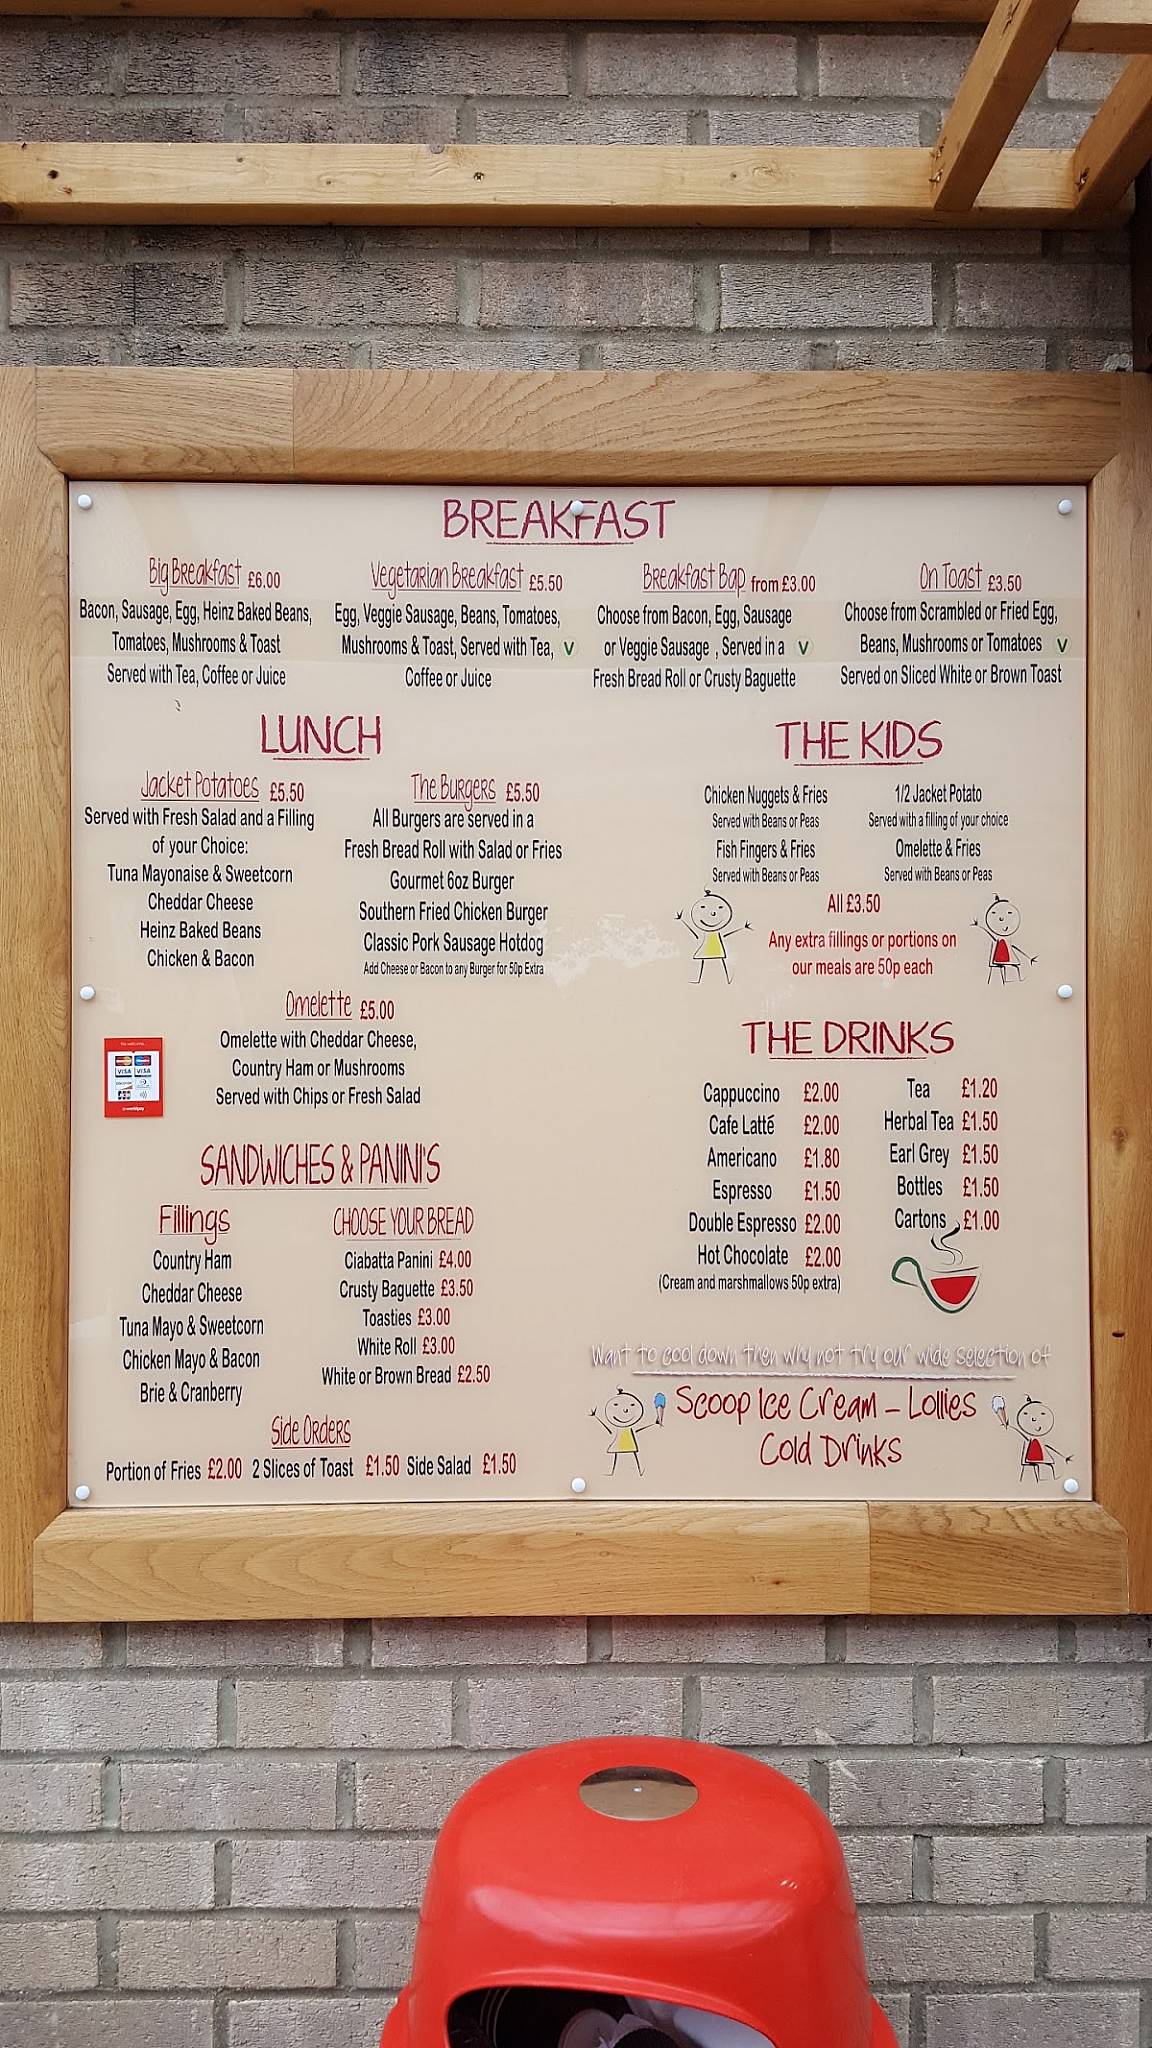 BREAKFAST
Big Breakfast £6.00
Bacon, Sausage, Egg, Heinz Baked Beans,
Tomatoes, Mushrooms & Toast
Served with Tea, Coffee or Juice
Vegetarian Breakfast £5.50
Egg, Veggie Sausage, Beans, Tomatoes,
Mushrooms & Toast, Served with Tea, V
Coffee or Juice
Breakfast Bap from £3.00
Choose from Bacon, Egg, Sausage
or Veggie Sausage , Served in a V
Fresh Bread Roll or Crusty Baguette
On Toast £3.50
Choose from Scrambled or Fried Egg,
Beans, Mushrooms or Tomatoes V
Served on Sliced White or Brown Toast
LUNCH
Jacket Potatoes £5.50
Served with Fresh Salad and a Filling
of your Choice:
Tuna Mayonaise & Sweetcorn
Cheddar Cheese
Heinz Baked Beans
Chicken & Bacon
The Burgers £5.50
All Burgers are served in a
Fresh Bread Roll with Salad or Fries
Gourmet 6oz Burger
Southern Fried Chicken Burger
Classic Pork Sausage Hotdog
Add Cheese or Bacon to any Burger for 50p Extra
Omelette £5.00
Omelette with Cheddar Cheese,
Country Ham or Mushrooms
Served with Chips or Fresh Salad
VISA VISA
worldpay
SANDWICHES & PANINI'S
Fillings
Country Ham
Cheddar Cheese
Tuna Mayo & Sweetcorn
Chicken Mayo & Bacon
Brie & Cranberry
CHOOSE YOUR BREAD
Ciabatta Panini £4.00
Crusty Baguette £3.50
Toasties £3.00
White Roll £3.00
White or Brown Bread £2.50
Side Orders
Portion of Fries £2.00 2 Slices of Toast £1.50 Side Salad £1.50
THE KIDS
Chicken Nuggets & Fries
Served with Beans or Peas
Fish Fingers & Fries
Served with Beans or Peas
1/2 Jacket Potato
Served with a filling of your choice
Omelette & Fries
Served with Beans or Peas
All £3.50
Any extra fillings or portions on
our meals are 50p each
THE DRINKS
Cappuccino £2.00
Cafe Latté £2.00
Americano £1.80
Espresso £1.50
Double Espresso £2.00
Hot Chocolate £2.00
(Cream and marshmallows 50p extra)
Tea £1.20
Herbal Tea £1.50
Earl Grey £1.50
Bottles £1.50
Cartons £1.00
Want to cool down then why not try our wide selection of
Scoop Ice Cream - Lollies
Cold Drinks